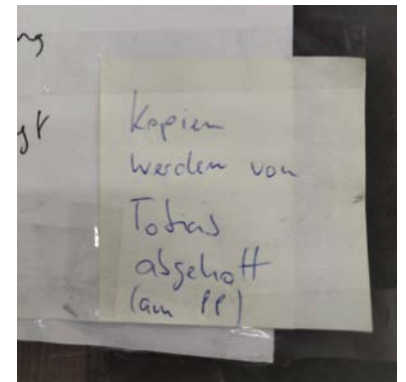 ng
gt
Kopien
werden von
Tobias
abgeholt
(am PP)